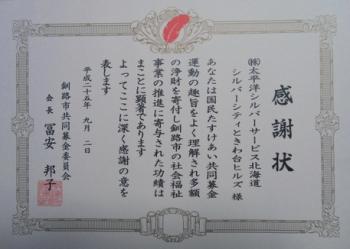 感謝状
㈱太平洋シルバーサービス北海道
シルバーシティときわ台ヒルズ 様
あなたは国民たすけあい共同募金
運動の趣旨をよく理解され多額
の浄財を寄付し釧路市の社会福祉
事業の推進に寄与された功績は
まことに顕著であります
よってここに深く感謝の意を
表します
平成二十五年 九月 二日
釧路市共同募金委員会
会長 冨安 邦子